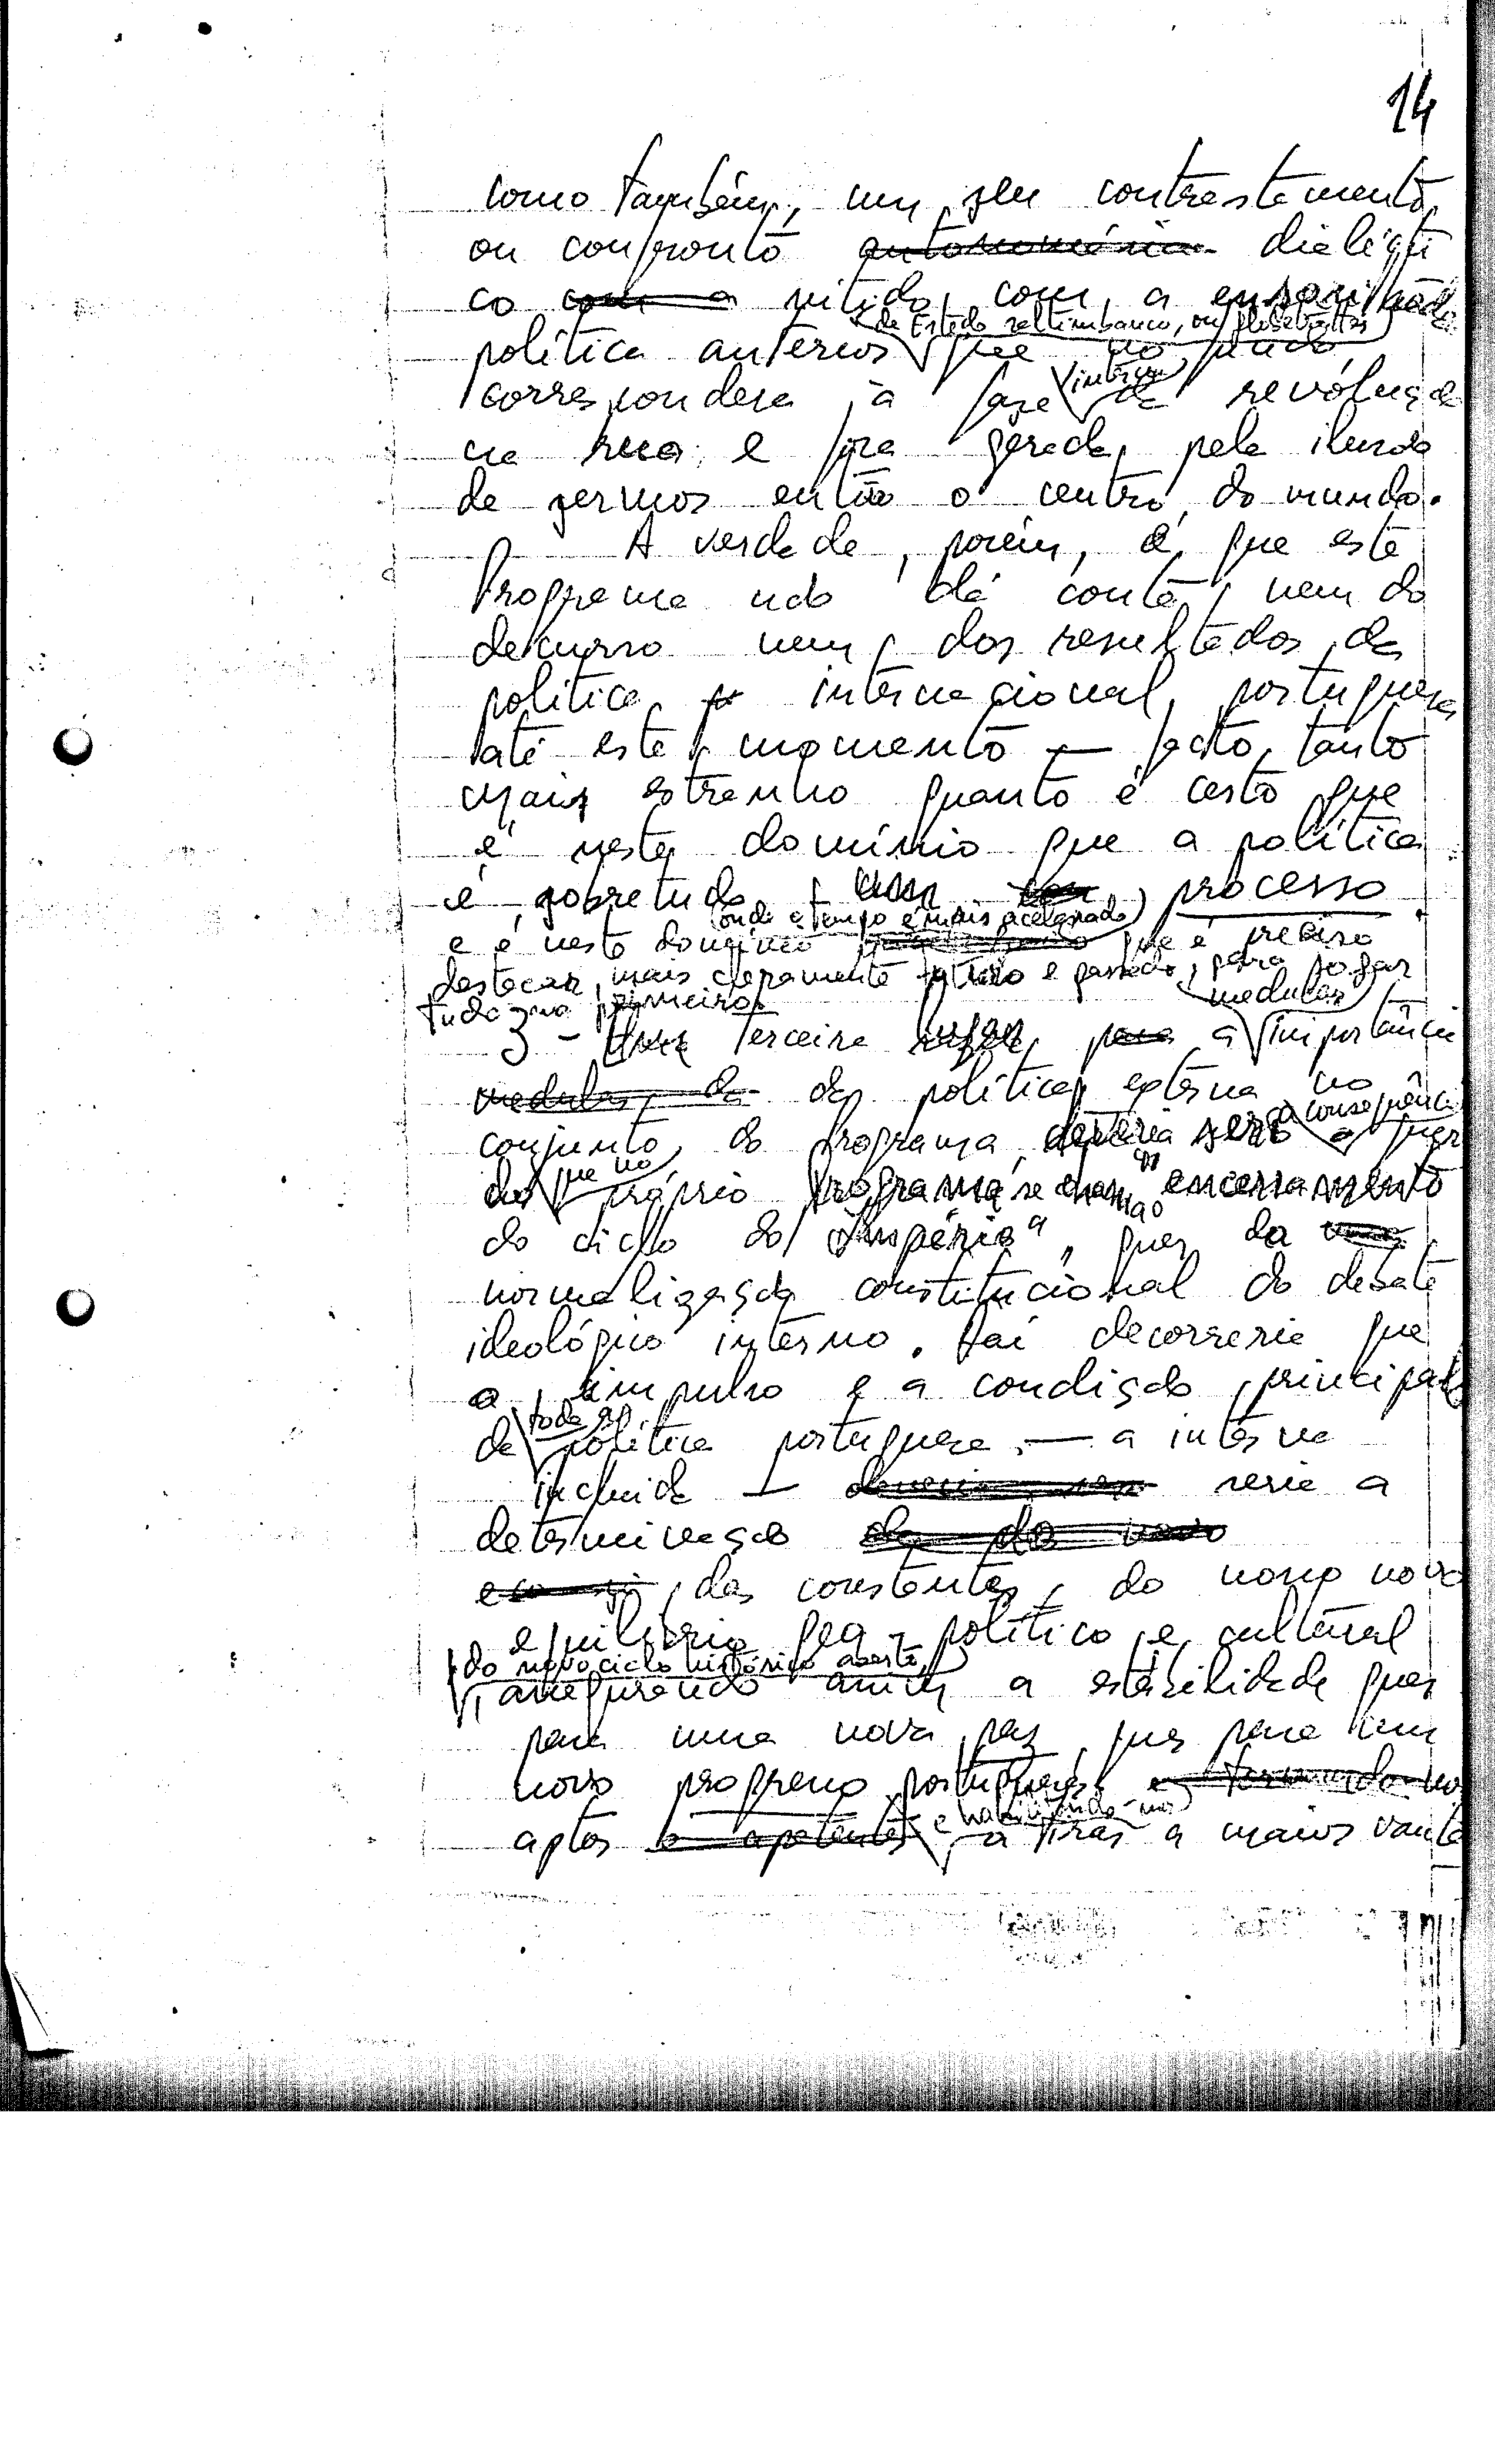 14
como também, um seu contrastamento,
ou confronto dialécti
co nitido, com a
de Estado saltimbanco, ou
política anterior que no
correspondera à fase da revolução
na rua e fora gerada pela ilusão
de sermos então o centro do mundo.
A verdade, porém, é que este
Programa não dá conta, nem do
decurso nem dos resultados da
política internacional portuguesa
até este momento — facto tanto
mais estranho quanto é certo que
é neste domínio que a política
é, sobretudo, um processo
(onde o tempo é mais acelerado)
e é neste domínio que é preciso
destacar, mais claramente futuro e passado, para jogar
tudo no primeiro.
medular
3 - terceira a importância
medular, da da política externa no
a consequência
conjunto do programa, deveria ser quer
que no
do próprio Programa se chamao "encerramento
do ciclo do Império", quer da
normalização constitucional do debate
ideológico interno. Daí decorreria que
o impulso e a condição principal
toda a
da política portuguesa — a interna
incluida — seria a
determinação
das constantes, do nosso novo
equilíbrio geo-político e cultural
do novo ciclo histórico aberto,
assegurando assim a estabilidade quer
para uma nova paz, quer para um
novo progresso português
e habilitando-nos
aptos e apetentes a tirar a maior vanta